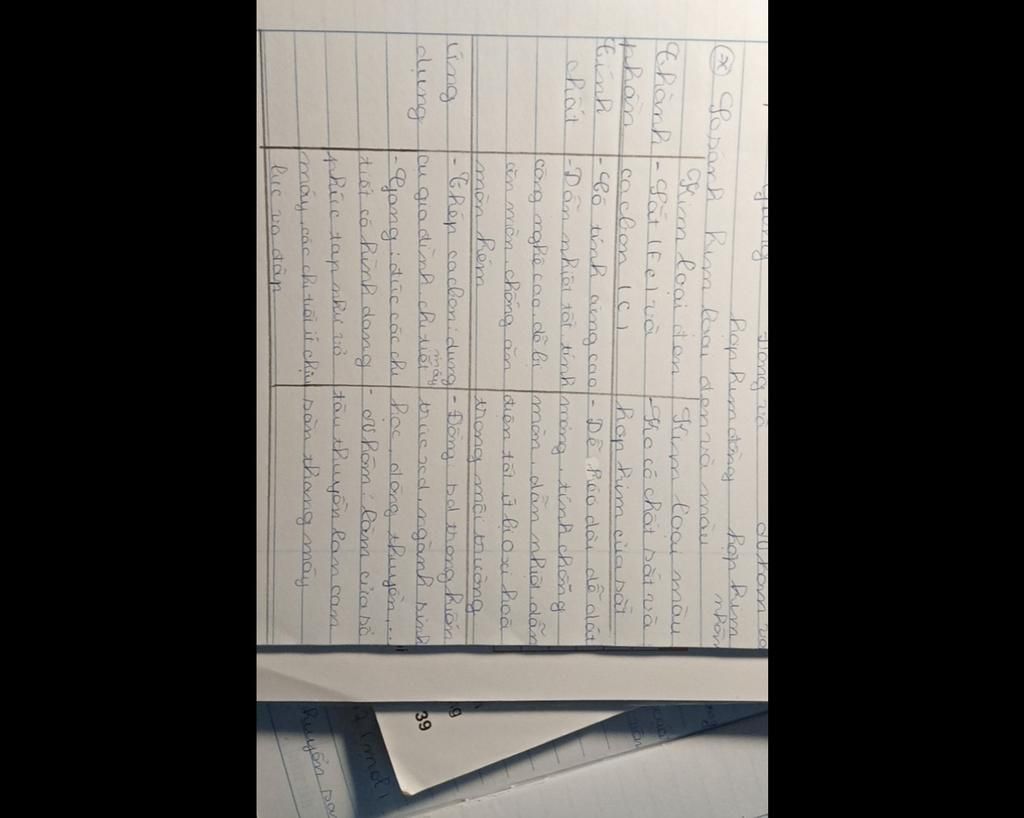 Đồng và
hợp kim đồng hợp kim
nhôm
* So sánh kim loại đen và màu
Kim loại đen Kim loại màu
Thành phần
- Sắt (Fe) và
cacbon (C)
- Ko có chất sắt và
hợp kim của sắt
Tính chất
- Có tính cứng cao
- Dẫn nhiệt tốt tính
công nghệ cao, dễ bị
ăn mòn, chống ăn
mòn kém
- Dễ kéo dài dễ dát
mỏng, tính chống
mòn, dẫn nhiệt dẫn
điện tốt ít bị oxi hoá
trong môi trường
Ứng dụng
- Thép cacbon: dụng
cụ gia đình chi tiết
máy
- Gang: đúc các chi
tiết có hình dạng
phức tạp như vỏ
máy, các chi tiết ít chịu
lực va đập
- Đồng: sd trong kiến
trúc xd, ngành sinh
học, đóng thuyền,...
- Nhôm: làm cửa sổ
tàu thuyền lan can
sàn thang máy
39